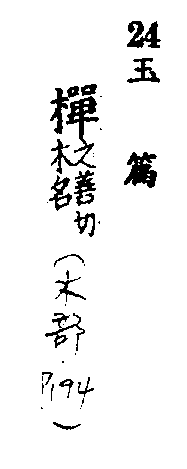 24
玉篇
樿之善切木名(木部P.194)